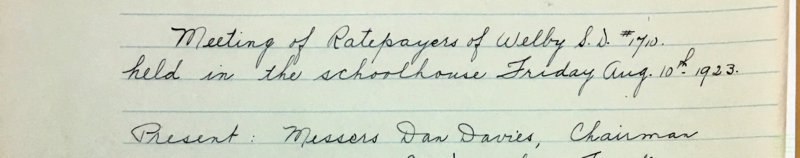 Meeting of Ratepayers of Welby S.D. #1710.
held in the schoolhouse Friday Aug. 10th. 1923.
Present: Messers Dan Davies, Chairman